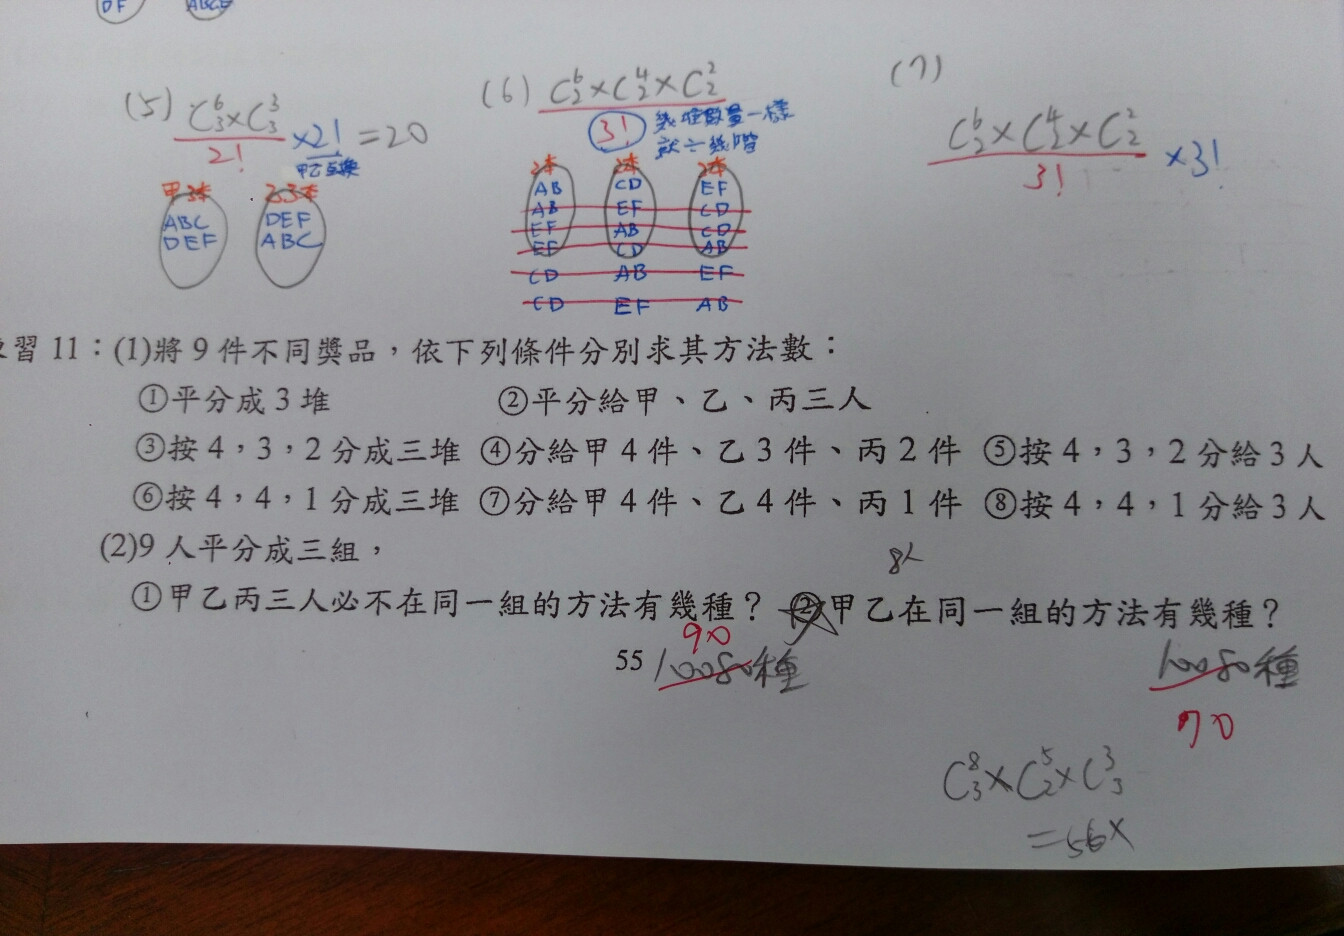 DF ABCE
(5) C⁶₃×C³₃ / 2! ×2! =20
甲乙互換
甲3本 乙3本
ABC DEF
DEF ABC
(6) C⁶₂×C⁴₂×C²₂ / 3!
幾堆數量一樣
就÷幾階
2本 2本 2本
AB CD EF
AB EF CD
EF AB CD
EF CD AB
CD AB EF
CD EF AB
(7)
C⁶₂×C⁴₂×C²₂ / 3! ×3!
習 11：(1)將 9 件不同獎品，依下列條件分別求其方法數：
①平分成 3 堆 ②平分給甲、乙、丙三人
③按 4，3，2 分成三堆 ④分給甲 4 件、乙 3 件、丙 2 件 ⑤按 4，3，2 分給 3 人
⑥按 4，4，1 分成三堆 ⑦分給甲 4 件、乙 4 件、丙 1 件 ⑧按 4，4，1 分給 3 人
(2)9 人平分成三組，
8人
①甲乙丙三人必不在同一組的方法有幾種？ ②甲乙在同一組的方法有幾種？
90
55 10080種 10080種
70
C⁸₃×C⁵₂×C³₃
=56×